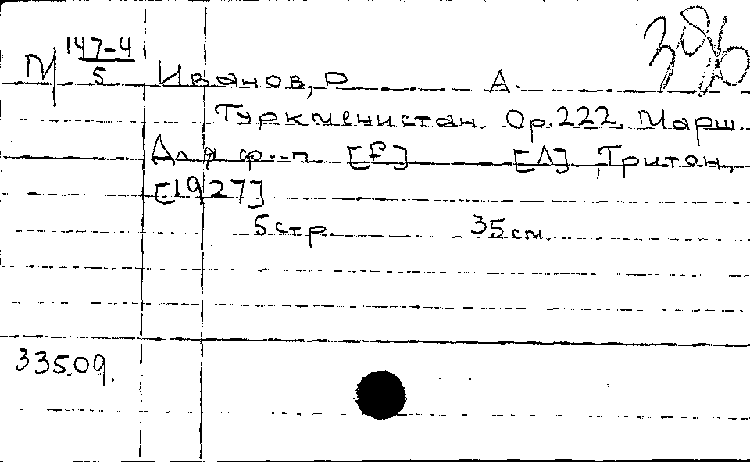 386
М 147-4/5 Иванов, Р А.
Туркменистан. Ор. 222. Марш.
Для ф.-п. [F] [Л], Тритон,
[1927]
5 стр. 35 см.
33509.